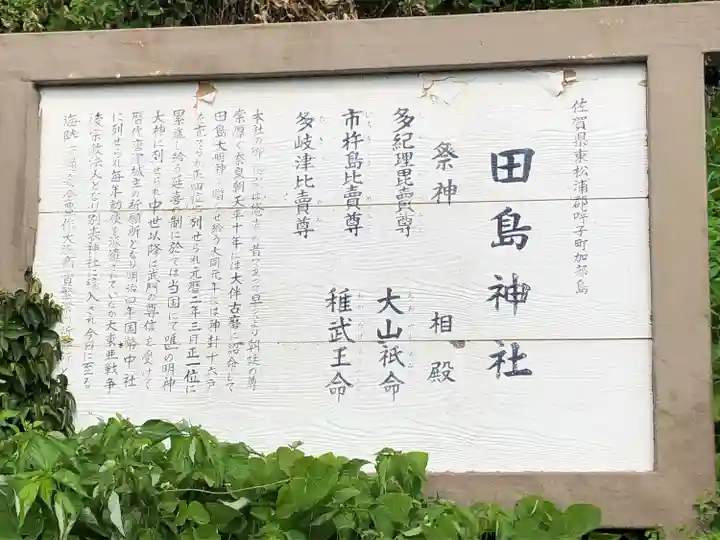 佐賀県東松浦郡呼子町加部島
田島神社
祭神
多紀理毘賣尊
市杵島比賣尊
多岐津比賣尊
相殿
大山祇命
稚武王命
本社の御
崇厚く奈良朝天平十年には大伴古麿に詔給して
田島大明神 贈 せ給う大同元年には神封十六戸
に列せられ元暦二年三月正一位に
累進し給う延喜の制に於ては当国にて唯一の明神
大神に列せられ中世以降は武門の尊信を受けて
暦代唐津城主の祈願所となり明治四年国幣中社
に列せられ毎年勅使を派遣されていたが大東亜戦争
後宗教法人となり別表神社に編入され今日に至る
海陸